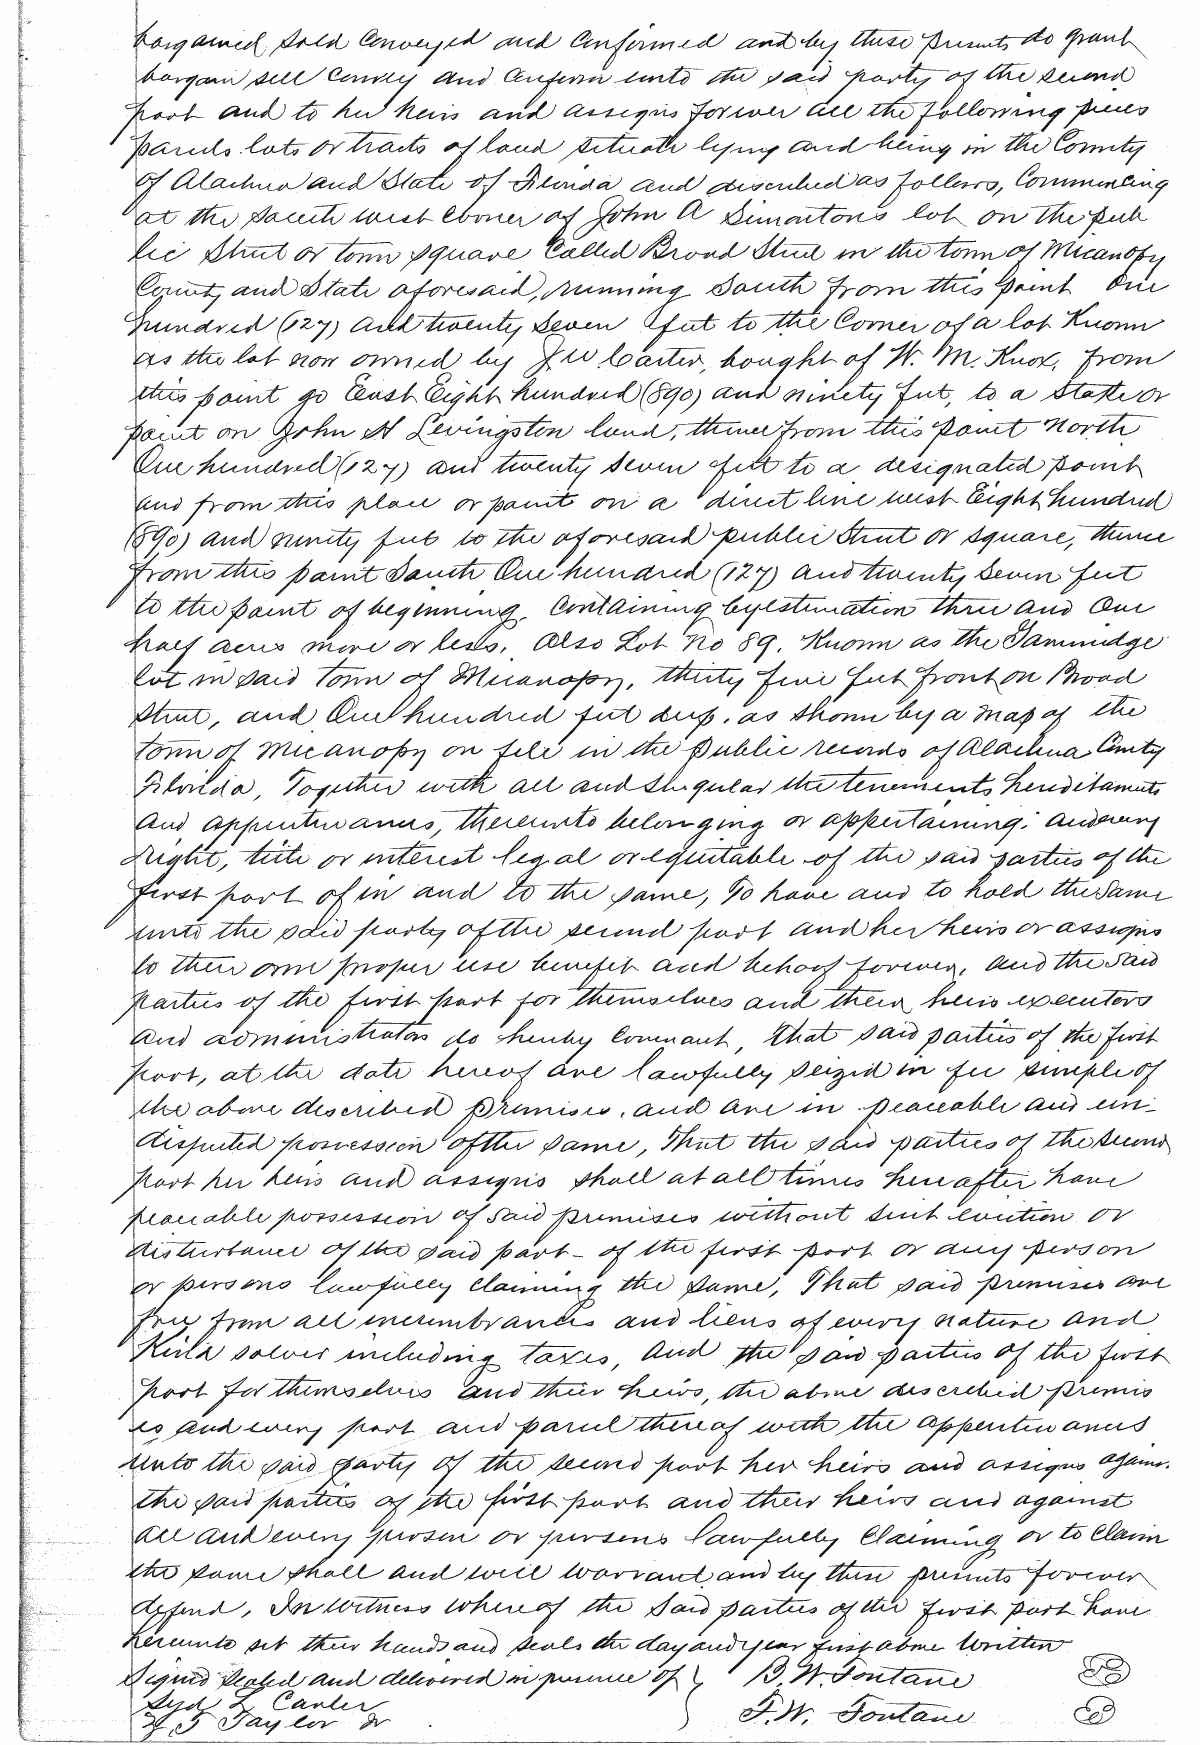 bargained, sold conveyed and confirmed and by these presents do grant
bargain sell convey and confirm unto the said party of the second
part and to her heirs and assigns forever all the following pieces
parcels lots or tracts of land situate lying and being in the County
of Alachua and State of Florida and described as follows, Commencing
at the south west corner of John A Simontons lot on the pub
lic Street or town square called Broad Street in the town of Micanopy
County and State aforesaid, running South from this point One
hundred (127) and twenty seven feet to the corner of a lot Known
as the lot now owned by J W Carter, bought of W. M. Knox, from
this point go East Eight hundred (890) and ninety feet, to a stake or
point on John H Levingston land, thence from this point North
One hundred (127) and twenty seven feet to a designated point
and from this place or point on a direct line west Eight hundred
(890) and ninety feet to the aforesaid public Street or square, thence
from this point South One hundred (127) and twenty seven feet
to the point of beginning, containing by estimation three and One
half acres more or less. Also Lot No 89. Known as the Tammidge
lot in said Town of Micanopy, thirty five feet front on Broad
Street, and One hundred feet deep. as shown by a map of the
town of Micanopy on file in the public records of Alachua County
Florida, Together with all and singular the tenements hereditaments
and appurtenances, thereunto belonging or appertaining; and every
right, title or interest legal or equitable of the said parties of the
first part of in and to the same, To have and to hold the same
unto the said party of the second part and her heirs or assigns
to their own proper use benefit and behoof forever, And the said
parties of the first part for themselves and their heirs executors
and administrators do hereby covenant, That said parties of the first
part, at the date hereof are lawfully seized in fee simple of
the above described premises, and are in peaceable and un-
disputed possession of the same, That the said parties of the second
part her heirs and assigns shall at all times hereafter have
peaceable possession of said premises without suit eviction or
disturbance of the said part- of the first part or any person
or persons lawfully claiming the same, That said premises are
free from all incumbrances and liens of every nature and
Kind including taxes, And the said parties of the first
part for themselves and their heirs, the above described premis
es and every part and parcel thereof with the appurtenances
unto the said party of the second part her heirs and assigns against
the said parties of the first part and their heirs and against
all and every person or persons lawfully claiming or to claim
the same shall and will warrant and by these presents forever
defend, In witness whereof the said parties of the first part have
hereunto set their hands and seals the day and year first above written
Signed sealed and delivered in presence of } B. W. Fontane
Syd L Carter F. W. Fontane
Taylor Jr